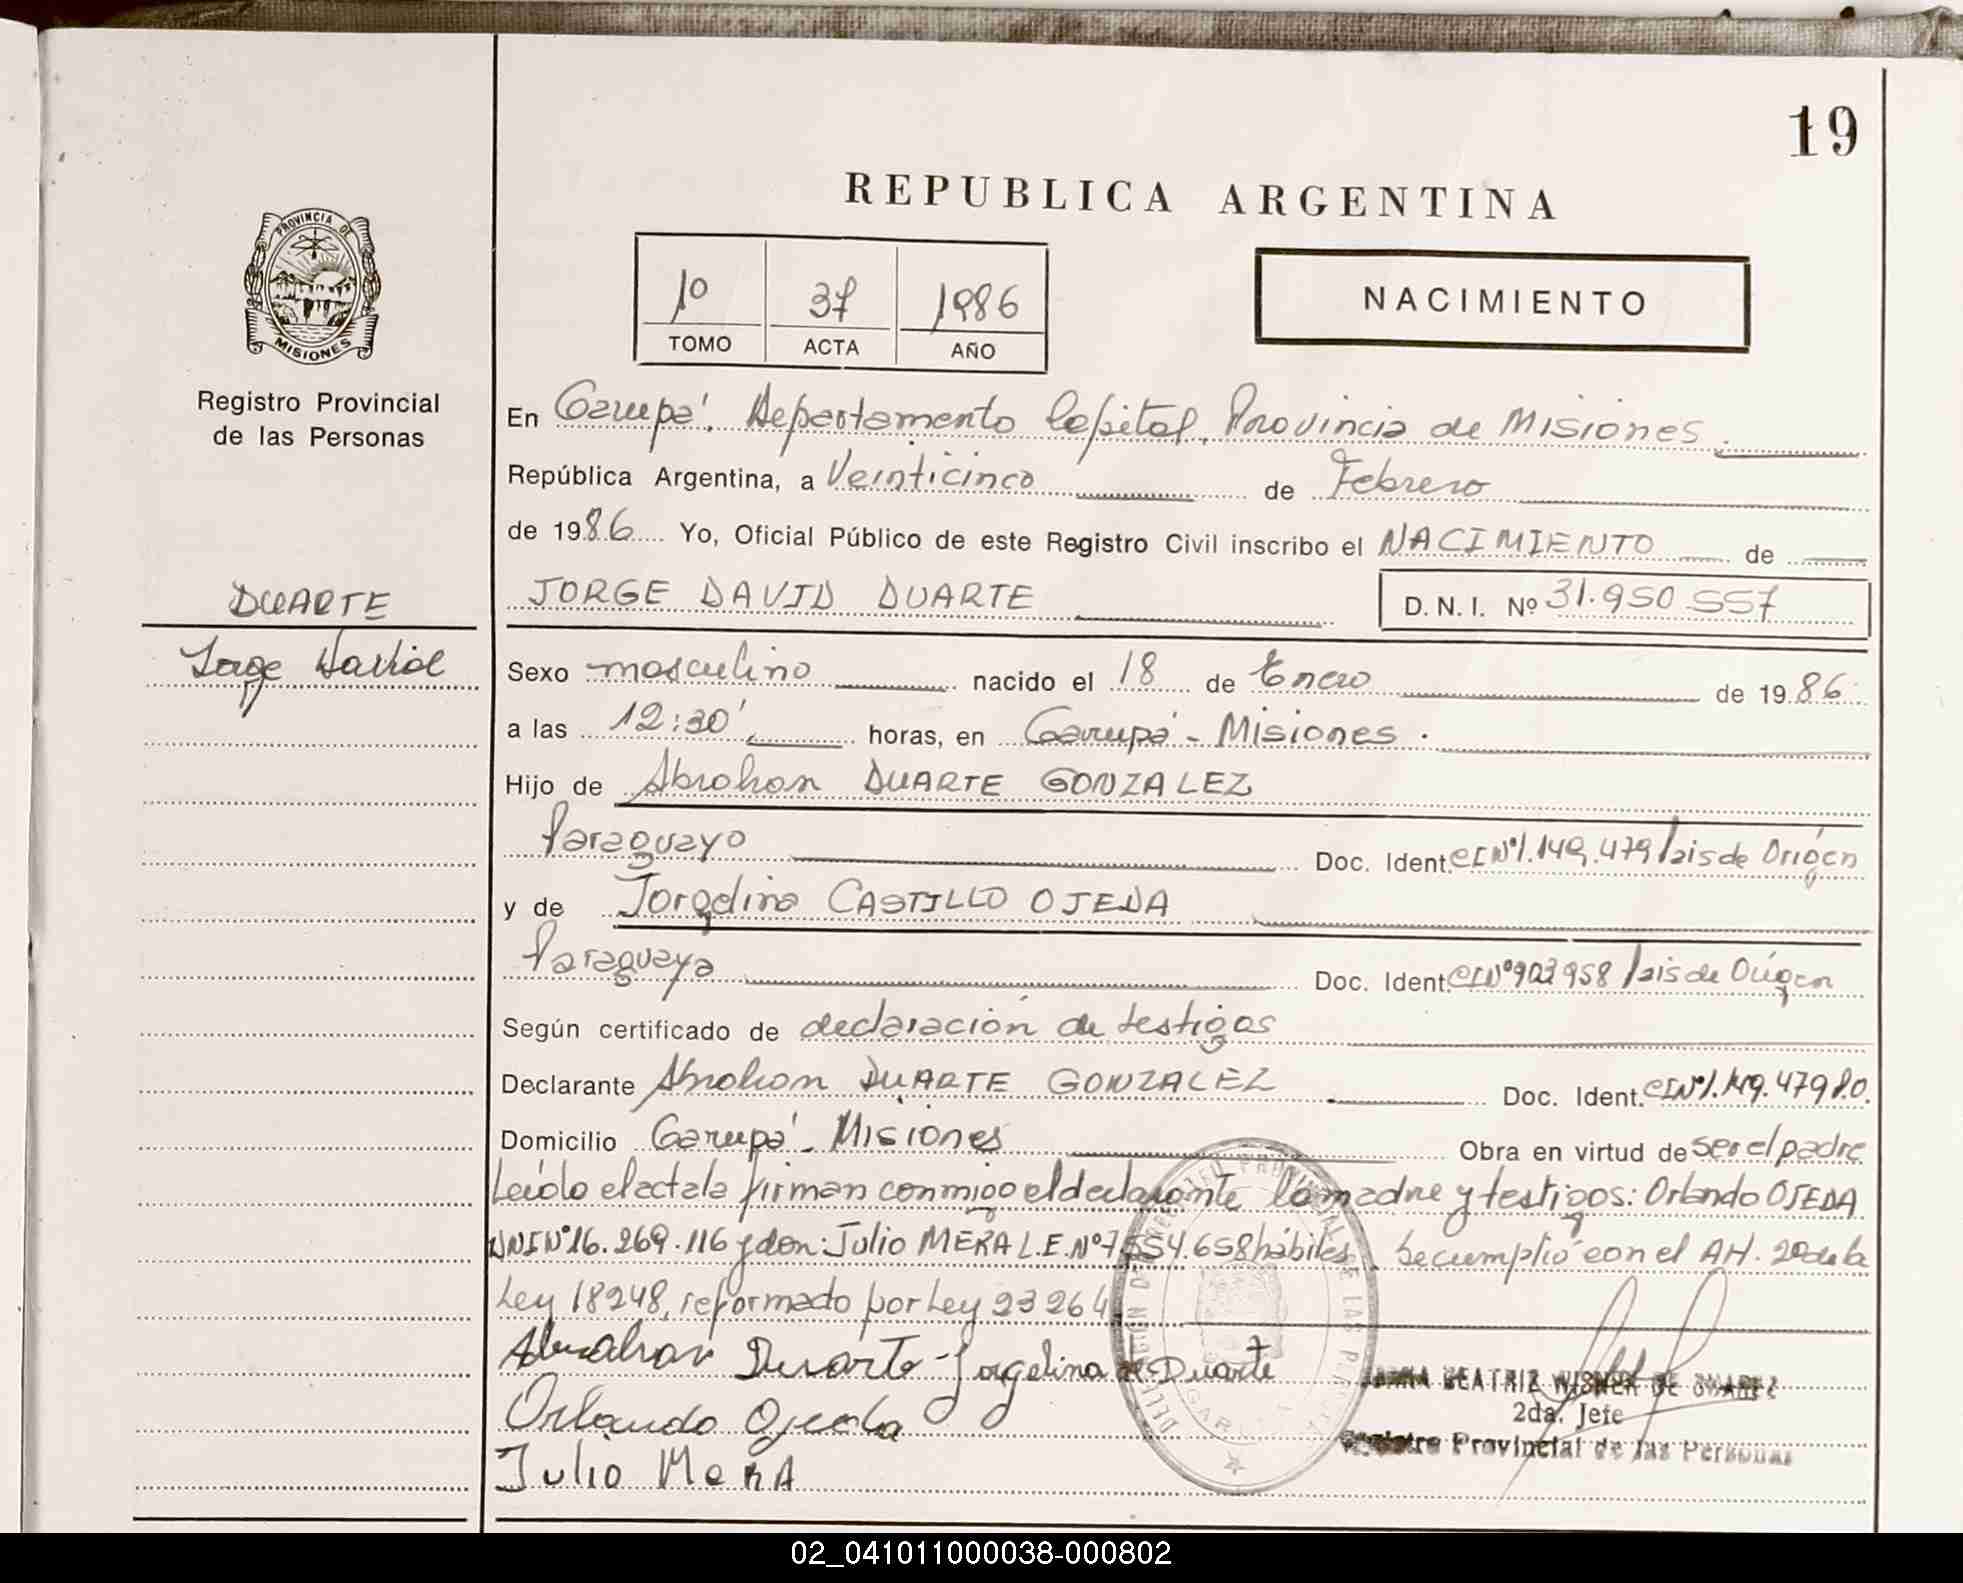 19
REPUBLICA ARGENTINA
PROVINCIA DE
MISIONES
Registro Provincial
de las Personas
1º 37 1986
TOMO ACTA AÑO
NACIMIENTO
En Garupá. Departamento Capital. Provincia de Misiones.
República Argentina, a Veinticinco de Febrero
de 1986 Yo, Oficial Público de este Registro Civil inscribo el NACIMIENTO de
JORGE DAVID DUARTE D.N.I. Nº 31.950.557
DUARTE
Jorge David
Sexo masculino nacido el 18 de Enero de 1986
a las 12:30' horas, en Garupá - Misiones.
Hijo de Abrahan DUARTE GONZALEZ
Paraguayo Doc. Ident. CI Nº 1.149.479 País de Orígen
y de Jorgelina CASTILLO OJEDA
Paraguaya Doc. Ident. CI Nº 903958 País de Orígen
Según certificado de declaración de testigos
Declarante Abrahan DUARTE GONZALEZ Doc. Ident. CI Nº 1.149.479 P.O.
Domicilio Garupá - Misiones Obra en virtud de ser el padre
Leído el acta la firman conmigo el declarante la madre y testigos: Orlando OJEDA
DNI Nº 16.269.116 y don: Julio MERA L.E. Nº 7.554.658 hábiles. Se cumplió con el Art. 20 de la
Ley 18248, reformado por Ley 23264
Abrahan Duarte - Jorgelina de Duarte
Orlando Ojeda
Julio MerA
BEATRIZ WISNER DE SUAREZ
2da. Jefe
Registro Provincial de las Personas
DELEGACION DEL REGISTRO PROVINCIAL DE LAS PERSONAS
GARUPA
02_041011000038-000802